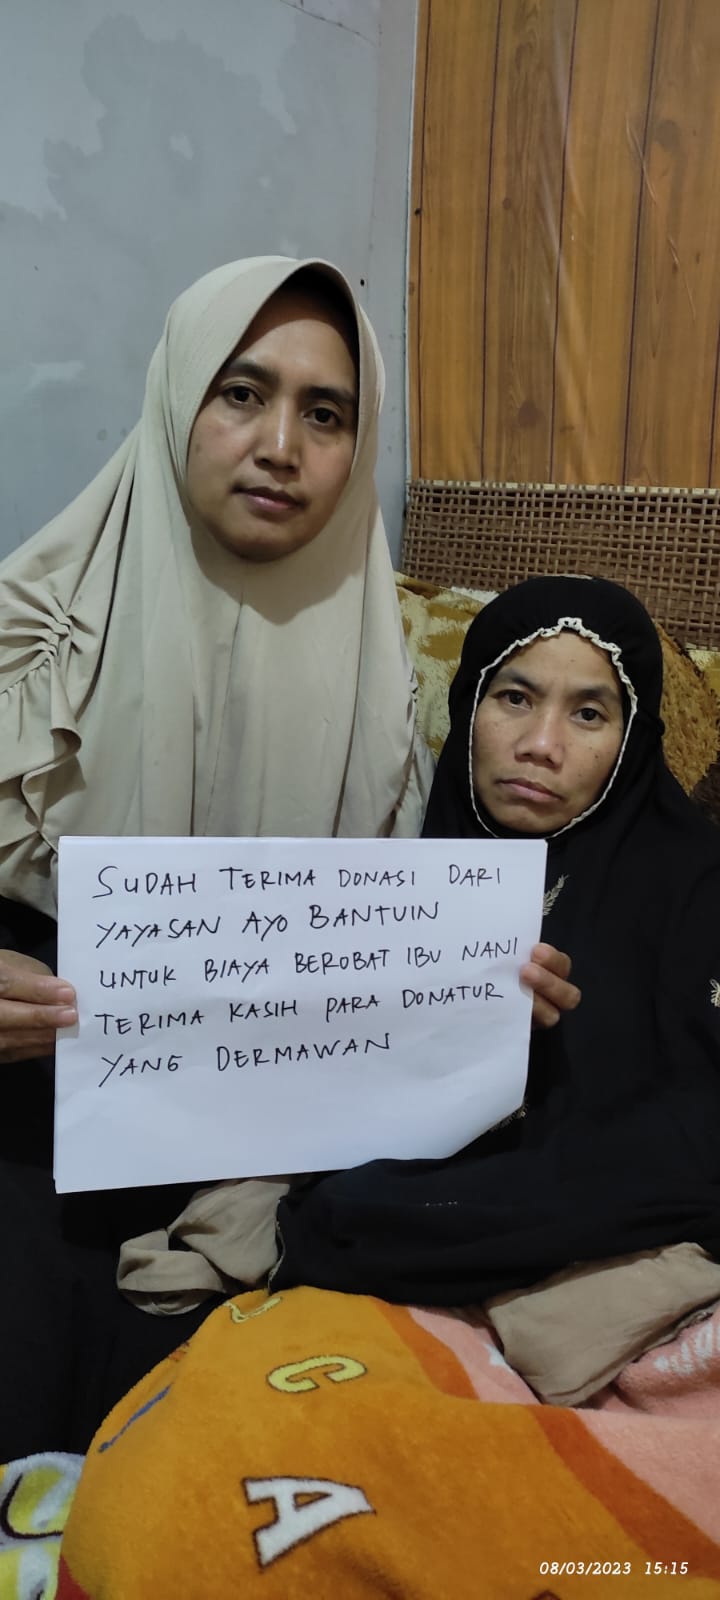 SUDAH TERIMA DONASI DARI
YAYASAN AYO BANTUIN
UNTUK BIAYA BEROBAT IBU NANI
TERIMA KASIH PARA DONATUR
YANG DERMAWAN
C
A
08/03/2023 15:15